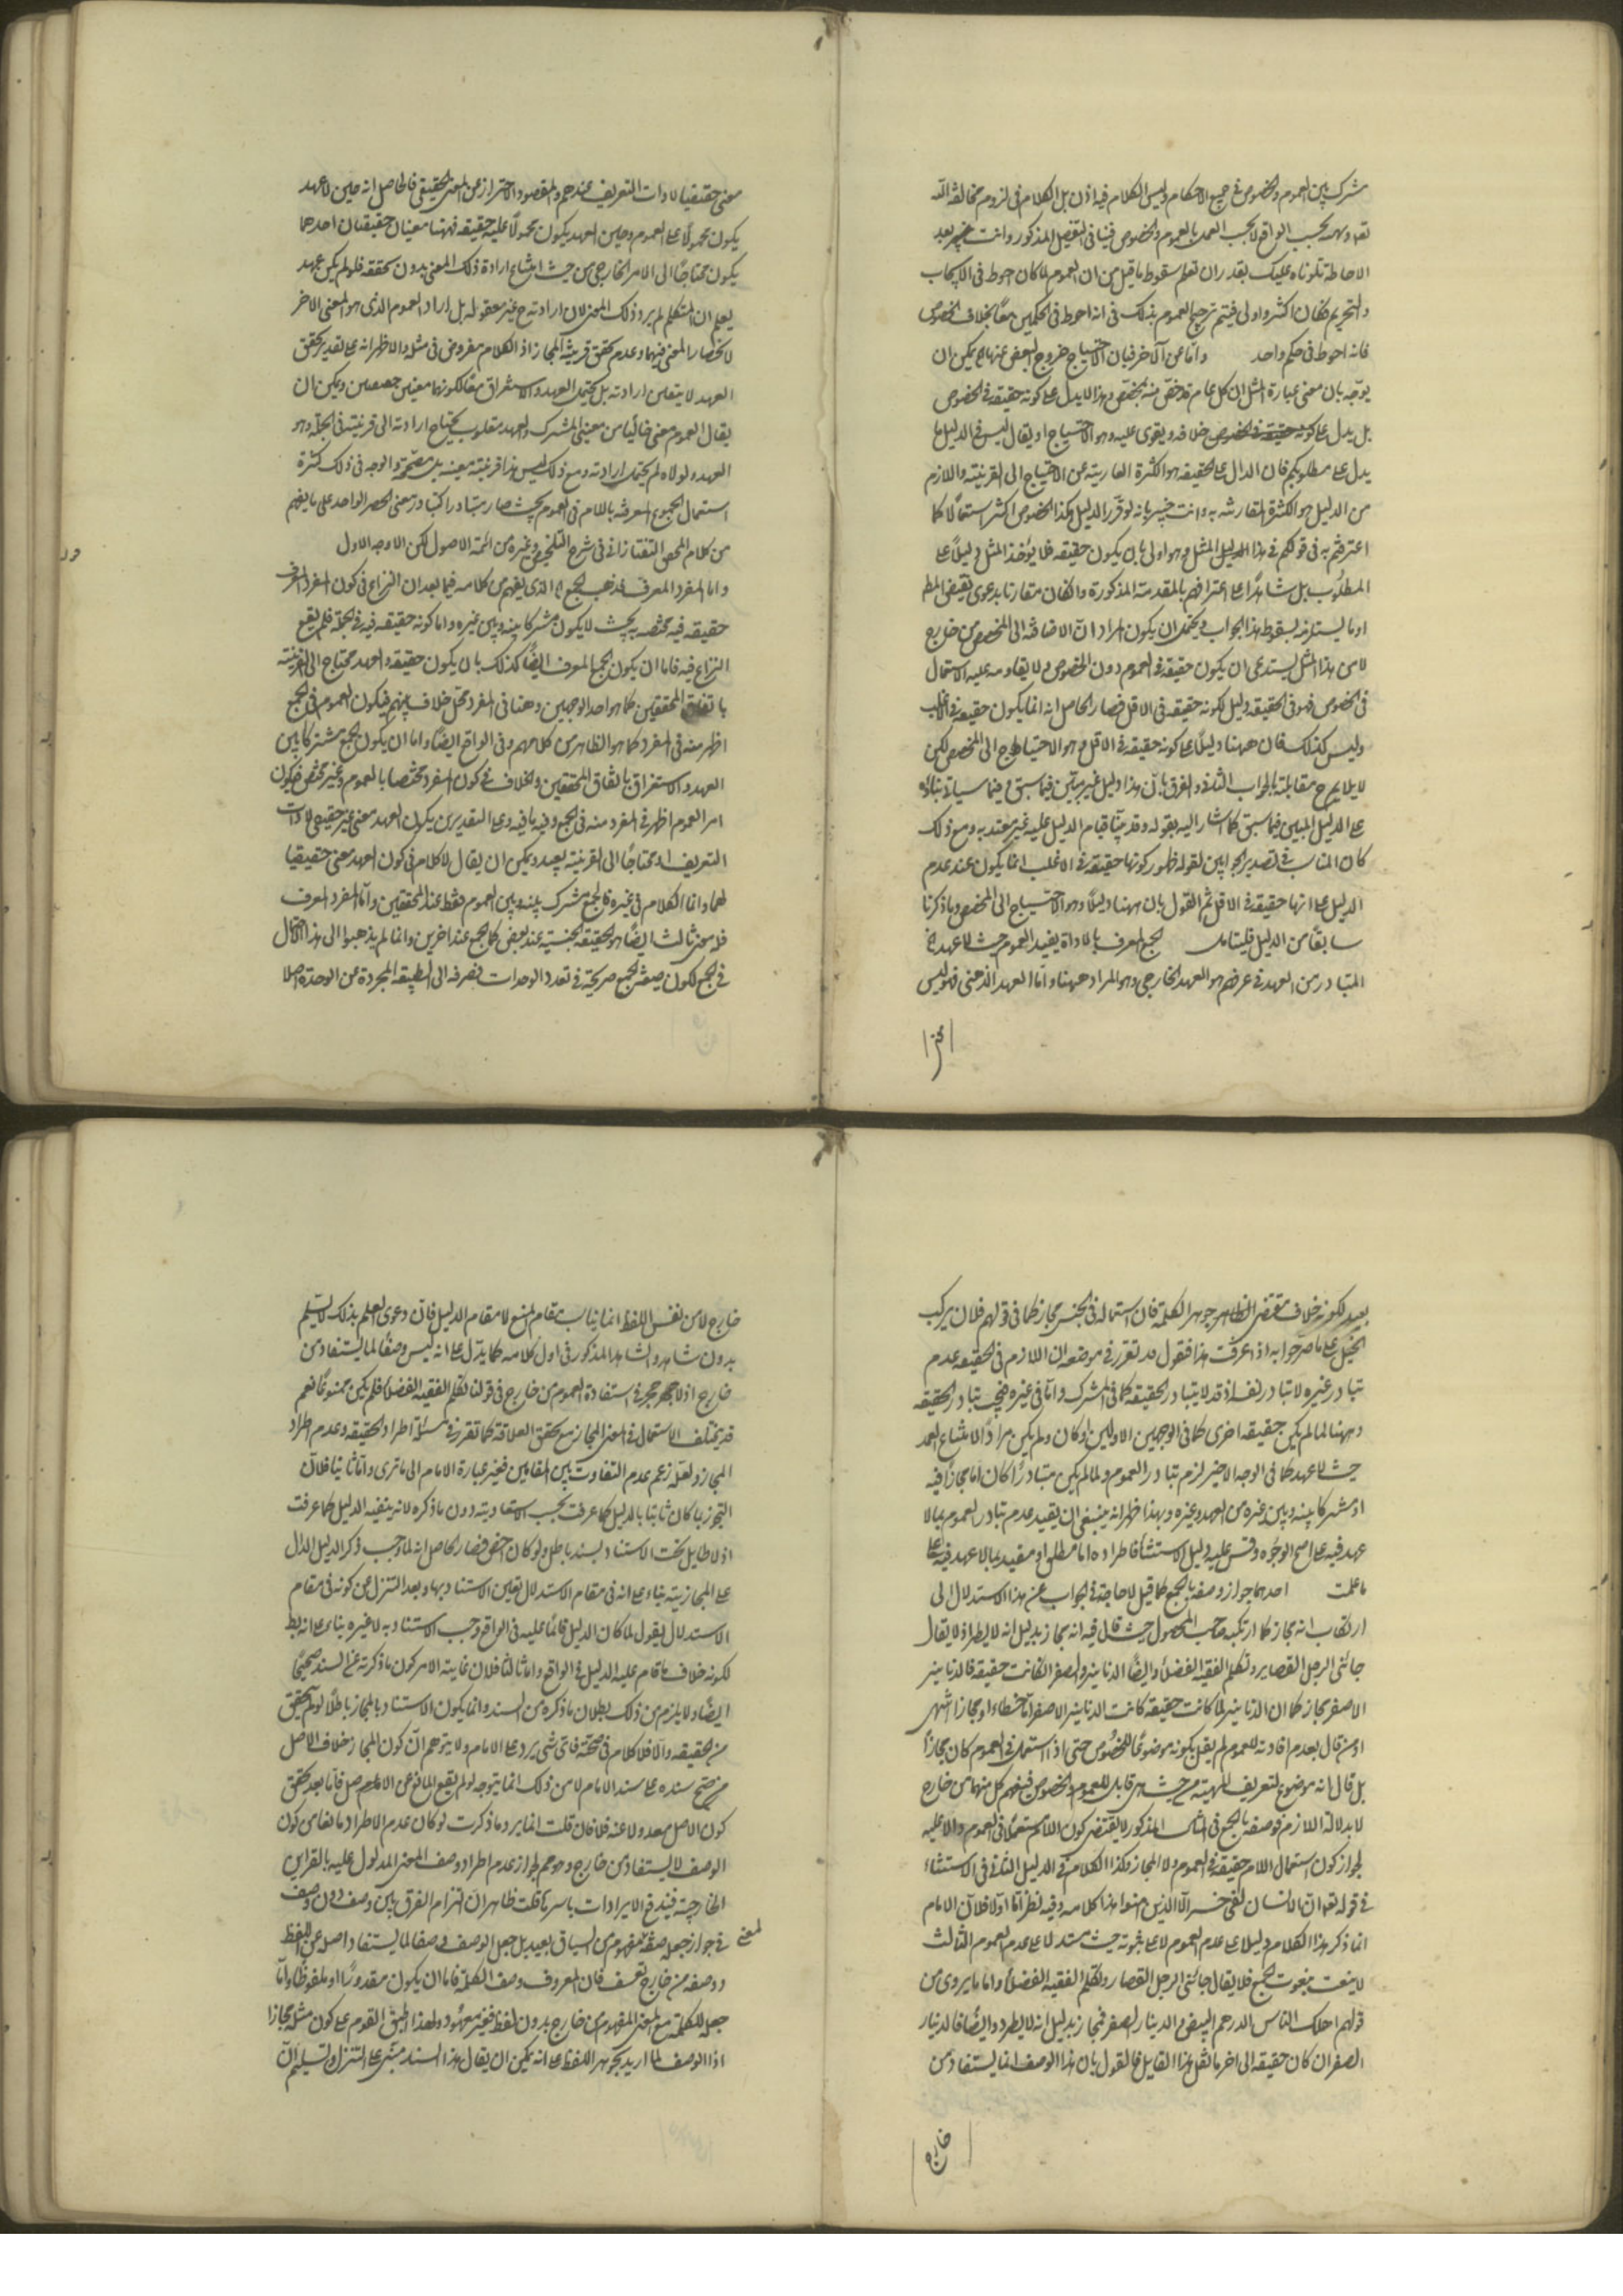 مشترك بين العموم والخصوص في جميع الاحكام وليس الكلام فيه اذن بل الكلام في لزوم مخالفة الله
تعالى وعدمه بحسب الواقع لا بحسب العمل بالعموم والخصوص فيا في التفصيل المذكور وانت خبير بعد
الاحاطة تلوناه عليك بقدر ان تعلم سقوط ما قيل من ان العموم لما كان احوط في الايجاب
والتحريم فكان اكثر واولى فيتم ترجيح العموم بذلك في انه احوط في الحكمين معًا بخلاف الخصوص
فانه احوط في حكم واحد وامّا عن الآخر فبان الاحتياج خروج البعض عنها يمكن ان
يوجّه بان معنى عبارة المثل ان كل عام قد خصّ منه بمخصّص وهذا لا يدل على كونه حقيقة في الخصوص
بل يدل على كونه حقيقة في الخصوص خلافه ويقوى عليه وهو الاحتياج او يقال ليس في الدليل ما
يدل على مطلوبكم فان الدال على الحقيقة هو الكثرة العارية عن الاحتياج الى القرينة واللازم
من الدليل هو الكثرة المقارنة به وانت خبير بانه لو قرّر الدليل هكذا الخصوص اكثر استعمالًا كما
اعترفتم به في قولكم في هذا الدليل المثل وهو اولى بان يكون حقيقة فلا يؤخذ المثل دليلًا على
المطلوب بل شاهدًا على اعترافهم بالمقدمة المذكورة وان كان مقارنا بدعوى نقيض المط
او ما يستلزمه يسقط هذا الجواب ويحتمل ان يكون المراد ان الاضافة الى المخصص من خارج
لا من هذا المثل يستدعى ان يكون حقيقة في العموم دون الخصوص ولا يقاومه غلبة الاستعمال
في الخصوص فهو في الحقيقة دليل لكونه حقيقة في الاقل فصار الحاصل انه انما يكون حقيقة في الاغلب
وليس كذلك فان ههنا دليلًا على كونه حقيقة في الاقل وهو الاحتياج الى المخصص لكن
لا يلايم ح مقابلته بالجواب الثاني والفرق بان هذا دليل غير مبتن فيما سبق وفيما سيأتي بناؤه
على الدليل المبين فيما سبق كما اشار اليه بقوله وقد بينا قيام الدليل عليه غير معتد به ومع ذلك
كان المناسب في تصدير الجوابين لقوله ظهور كونها حقيقة في الاغلب انما يكون عند عدم
الدليل على انها حقيقة في الاقل ثم القول بان ههنا دليلًا وهو الاحتياج الى المخصص وما ذكرنا
سابقًا من الدليل فليتامل الجمع المعرف بالاداة يفيد العموم حيث لا عهد الخ
المتبادر من العهد في عرفهم هو العهد الخارجي وهو المراد ههنا واما العهد الذهني فهو ليس
معنى حقيقيا لادات التعريف عندهم والمقصود الاحتراز عن المعنى الحقيقي فالحاصل انه حين لا عهد
يكون محمولًا على العموم وحين العهد يكون محمولًا عليه حقيقة فهنا معنيان حقيقيان احدهما
يكون محتاجًا الى الامر الخارجي من حيث امتناع ارادة ذلك المعنى بدون تحققه فلو لم يكن عهد
يعلم ان المتكلم لم يرد ذلك المعنى لان ارادته ح غير معقوله بل اراد العموم الذي هو المعنى الاخر
لانحصار المعنى فيهما وعدم تحقق قرينة المجاز اذ الكلام مفروض في مثله والاظهر انه على تقدير تحقق
العهد لا يتعين ارادته بل يحتمل العهد والاستغراق معًا لكونهما معنيين حقيقيين ويمكن ان
يقال العموم معنى خاليًا من معنيى المشترك والعهد مغلوب يحتاج ارادته الى قرينة في الجملة وهو
العهد ولولاه لم يحتمل ارادته ومع ذلك ليس هذا قرينة معينة بل مصحّحة والوجه في ذلك كثرة
استعمال الجموع المعرفة باللام في العموم بحيث صار متبادرا كتبادر معنى الحصر الواحد على ما يفهم
من كلام المحقق التفتازاني في شرح التلخيص وغيره من ائمة الاصول لكن الاوجه الاول
واما المفرد المعرف فذهب الخ الذي يفهم من كلامه فيما بعد ان النزاع في كون المفرد المعرف
حقيقة فيه مختصة به بحيث لا يكون مشتركا بينه وبين غيره واما كونه حقيقة فيه في الجملة فلم يقع
النزاع فيه فاما ان يكون الجمع المعرف ايضًا كذلك بان يكون حقيقة والعهد محتاج الى القرينة
باتفاق المحققين كما هو احد الوجهين وهنا في المفرد محل خلاف بينهم فيكون العموم في الجمع
اظهر منه في المفرد كما هو الظاهر من كلامهم وفي الواقع ايضًا واما ان يكون الجمع مشتركا بين
العهد والاستغراق باتفاق المحققين والخلاف في كون المفرد مختصا بالعموم وغير مختص فيكون
امر العموم اظهر في المفرد منه في الجمع وفيه ما فيه وعلى التقديرين يكون العهد معنى غير حقيقي لادات
التعريف او محتاجًا الى القرينة بعيد ويمكن ان يقال لا كلام في كون العهد معنى حقيقيا
لهما وانما الكلام في غيره فالجمع مشترك بينه وبين العموم فقط عند المحققين وامّا المفرد المعرف
فله معنى ثالث ايضًا هو الحقيقة الجنسية عند بعض كما للجمع عند اخرين وانما لم يذهبوا الى هذا الاحتمال
في الجمع لكون صيغة الجمع صريحة في تعدد الوحدات فصرفه الى الطبيعة المجردة من الوحدة اصلا
بعيد لكونه خلاف مقتضى الظاهر جوهر الكلمة فان استعماله في الجنس مجاز كما في قولهم فلان يركب
الخيل على ما صرحوا به اذا عرفت هذا فنقول قد تقرر في موضعه ان اللازم في الحقيقة عدم
تبادر غيره لا تبادر نفسه اذ قد لا يتبادر الحقيقة كما في المشترك واما في غيره فيجب تبادر الحقيقة
وههنا لما لم يكن حقيقة اخرى كما في الوجهين الاولين او كان ولم يكن مرادًا لامتناع العهد
حيث لا عهد كما في الوجه الاخير لزم تبادر العموم ولما لم يكن متبادرًا كان اما مجازًا فيه
او مشتركا بينه وبين غيره من العهد وغيره وبهذا ظهر انه ينبغي ان يقيد عدم تبادر العموم بما لا
عهد فيه على اصح الوجوه وقس عليه دليل الاستثناء فاطراده اما مطلقا او مقيد بما لا عهد فيه على
ما علمت احدهما جواز وصفه بالجمع كما قيل لا حاجة في الجواب عن هذا الاستدلال الى
ارتكاب انه مجاز كما ارتكبه صاحب المحصول حيث قال فيه انه مجاز بدليل انه لا يطرد اذ لا يقال
جائني الرجل القصار وتكلم الفقيه الفضلاء وايضًا الدنانير والصفر ان كانت حقيقة فالدنانير
الاصفر مجاز كما ان الدنانير لما كانت حقيقة كانت الدنانير الاصفر اما خطاء او مجازا انتهى
او من قال بعدم افادته للعموم لم يقل بكونه موضوعًا للخصوص حتى اذا استعمل في العموم كان مجازًا
بل قال انه موضوع لتعريف المهية من حيث هي قابل للعموم والخصوص فيفهم كل منهما من خارج
لا بدلالة اللازم فوصفه بالجمع في المثال المذكور لا يقتضي كون اللام مستعملًا في العموم والا عليه
لجواز كون استعمال اللام حقيقة في العموم ولا المجاز وكذا الكلام في الدليل الثاني في الاستثناء
في قوله تعالى ان الانسان لفي خسر الا الذين امنوا هذا كلامه وفيه نظر اما اولا فلان الامام
انما ذكر هذا الكلام دليلا على عدم العموم لا على ثبوته حيث استدل على عدم العموم الثالث
لا ينعت بنعوت الجمع فلا يقال جائني الرجل القصار وتكلم الفقيه الفضلاء واما ما يروى من
قولهم اهلك الناس الدرهم البيض والدينار الصفر فمجاز بدليل انه لا يطرد وايضًا فالدينار
الصفر ان كان حقيقة الى اخر ما نقل هذا القايل فالقول بان هذا الوصف انما يستفاد من
خارج
خارج لا من نفس اللفظ انما يناسب مقام المنع لا مقام الدليل فان دعوى العلم بذلك لا يسلم
بدون شاهد والشاهد المذكور في اول كلامه كما يدل على انه ليس وصفًا لما يستفاد من
خارج اذ لا حجر في استفادة العموم من خارج في قولنا تكلم الفقيه الفضلاء فلم يكن ممنوعًا نعم
قد يختلف الاستعمال في المعنى المجاز مع تحقق العلاقة كما تقرر في مسئلة اطراد الحقيقة وعدم اطراد
المجاز ولعله زعم عدم التفاوت بين المقامين فغير عبارة الامام الى ما ترى واما ثانيا فلان
التجوز بما كان ثابتا بالدليل كما عرفت يجب الاستناد به دون ما ذكره لانه ينفيه الدليل كما عرفت
اذ لا طايل تحت الاستناد بسند باطل ولو كان اخفى فصار الحاصل انه لما وجب ذكر الدليل الدال
على المجازية بناء على انه في مقام الاستدلال يتعين الاستناد بها وبعد التنزل عن كونه في مقام
الاستدلال يقول لما كان الدليل قائمًا عليه في الواقع وجب الاستناد به لا غيره بناء على انه بط
لكونه خلاف ما قام عليه الدليل في الواقع واما ثالثا فلان غاية الامر كون ما ذكرته عن السند صحيحًا
ايضًا ولا يلزم من ذلك بطلان ما ذكره من السند وانما يكون الاستناد بالمجاز باطلًا لو لم يتحقق
من الحقيقة والا فلا كلام في صحته فاى شى يرد على الامام ولا يتوهم ان كون المجاز خلاف الاصل
يرجح سنده على سند الامام لان ذلك انما يتوجه لو لم يقع المانع عن الاصل فاما بعد تحقق
كون الاصل معدولا عنه فلا فان قلت انما يرد ما ذكرت لو كان عدم الاطراد مانعا من كون
الوصف لا يستفاد من خارج وهو مم لجواز عدم اطراد وصف المعنى المدلول عليه بالقراين
الخارجية فيندفع الايرادات باسرها قلت ظاهر ان التزام الفرق بين وصف دون وصف
في جواز جعله صفة لمفهوم من السياق بعيد بل جعل الوصف وصفا لما يستفاد اصله عن اللفظ
ووصفه من خارج تعسف فان المعروف وصف الكلمة فاما ان يكون مقدورًا او ملفوظًا واما
جعله للكلمة مع المعنى المفهوم من خارج بدون لفظ فغير معهود ولهذا اطبق القوم على كون مثله مجازا
اذا الوصف لما اريد بجوهر اللفظ على انه يمكن ان يقال هذا السند مبنى على التنزل وتسليم ان